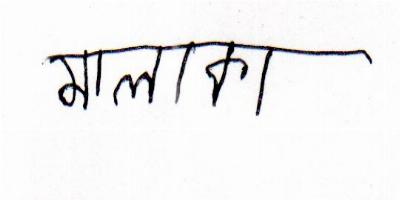 মালাকা